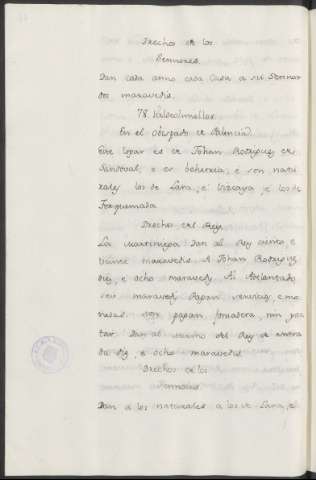 Drechos de los
Sennores.
Dan cada anno cada Casa a su Sennor
dos maravedis.
78. Valdeolmellas
En el Obispado de Palencia
Este logar es de Johan Rodriguez de
Sandoval, e es behetria, e son natu-
rales los de Lara, e Vizcaya, e los de
Torquemada
Drechos del Rey
La martiniega dan al Rey ciento, e
veinte maravedis. A Johan Rodriguez
diez, e ocho maravedis. Al Adelantado
seis maravedis. Pagan servicios e mo-
nedas. non pagan fonsadera, nin yan-
tar. Dan al merino del Rey de entra-
da diez, e ocho maravedis
Drechos de los
Sennores
Dan a los naturales a los de Lara, e